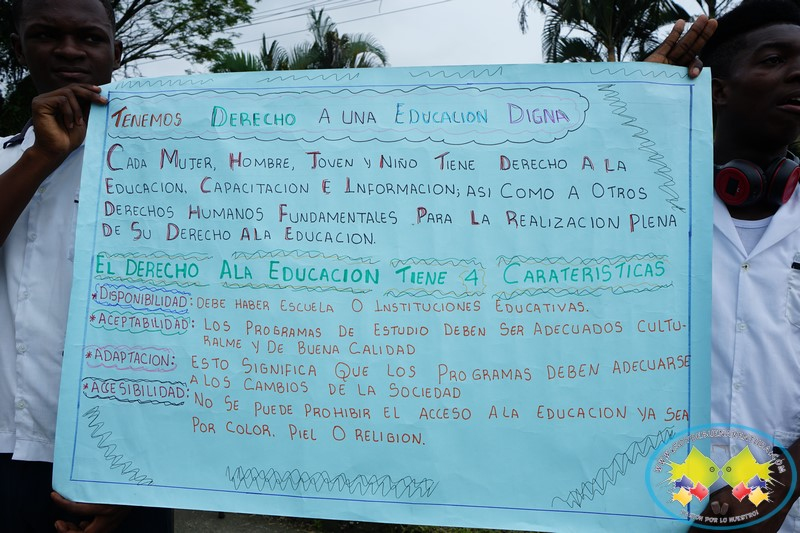 TENEMOS DERECHO A UNA EDUCACION DIGNA
CADA MUJER, HOMBRE, JOVEN Y NIÑO TIENE DERECHO A LA
EDUCACION, CAPACITACION E INFORMACION; ASI COMO A OTROS
DERECHOS HUMANOS FUNDAMENTALES PARA LA REALIZACION PLENA
DE SU DERECHO ALA EDUCACION.
EL DERECHO ALA EDUCACION TIENE 4 CARATERISTICAS
*DISPONIBILIDAD: DEBE HABER ESCUELA O INSTITUCIONES EDUCATIVAS.
*ACEPTABILIDAD: LOS PROGRAMAS DE ESTUDIO DEBEN SER ADECUADOS CULTU-
RALME Y DE BUENA CALIDAD
*ADAPTACION: ESTO SIGNIFICA QUE LOS PROGRAMAS DEBEN ADECUARSE
A LOS CAMBIOS DE LA SOCIEDAD
*ACCESIBILIDAD: NO SE PUEDE PROHIBIR EL ACCESO ALA EDUCACION YA SEA
POR COLOR, PIEL O RELIGION.